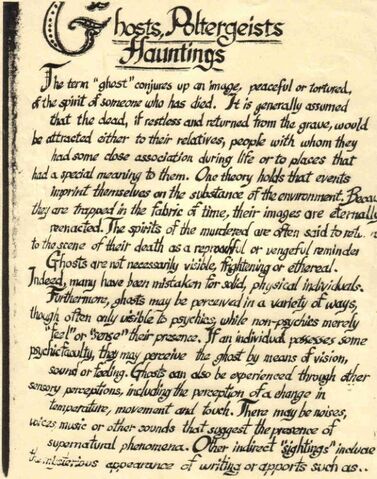 Ghosts, Poltergeists
Hauntings
The term "ghost" conjures up an image, peaceful or tortured,
of the spirit of someone who has died. It is generally assumed
that the dead, if restless and returned from the grave, would
be attracted either to their relatives, people with whom they
had some close association during life or to places that
had a special meaning to them. One theory holds that events
imprint themselves on the substance of the environment. Becau
they are trapped in the fabric of time, their images are eternally
reenacted. The spirits of the murdered are often said to retu
to the scene of their death as a reproachful or vengeful reminder
Ghosts are not necessarily visible, frightening or ethereal.
Indeed, many have been mistaken for solid, physical individuals.
Furthermore, ghosts may be perceived in a variety of ways,
though often only visible to psychics, while non-psychics merely
"feel" or "sense" their presence. If an individual possesses some
psychic faculty, they may perceive the ghost by means of vision,
sound or feeling. Ghosts can also be experienced through other
sensory perceptions, including the perception of a change in
temperature, movement and touch. There may be noises,
voices music or other sounds that suggest the presence of
supernatural phenomena. Other indirect "sightings" include
the mysterious appearance of writing or apports such as..